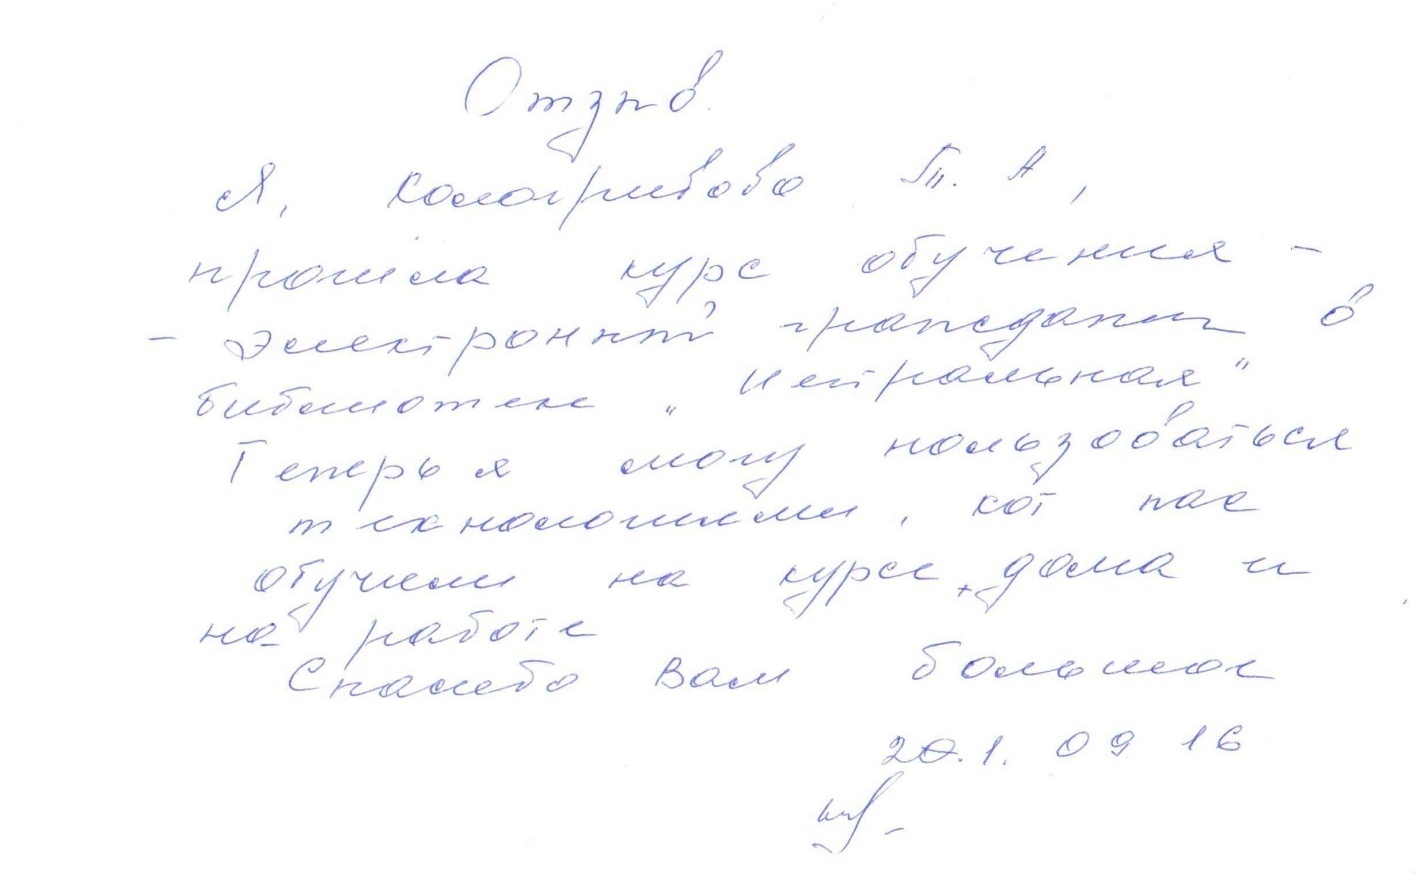 Отзыв.
Я, Кологривова Т. А,
прошла курс обучения -
- электронный гражданин в
библиотеке „Центральная"
Теперь я могу пользоваться
технологиями, кот нас
обучили на курсе, дома и
на работе
Спасибо Вам большое
09 16